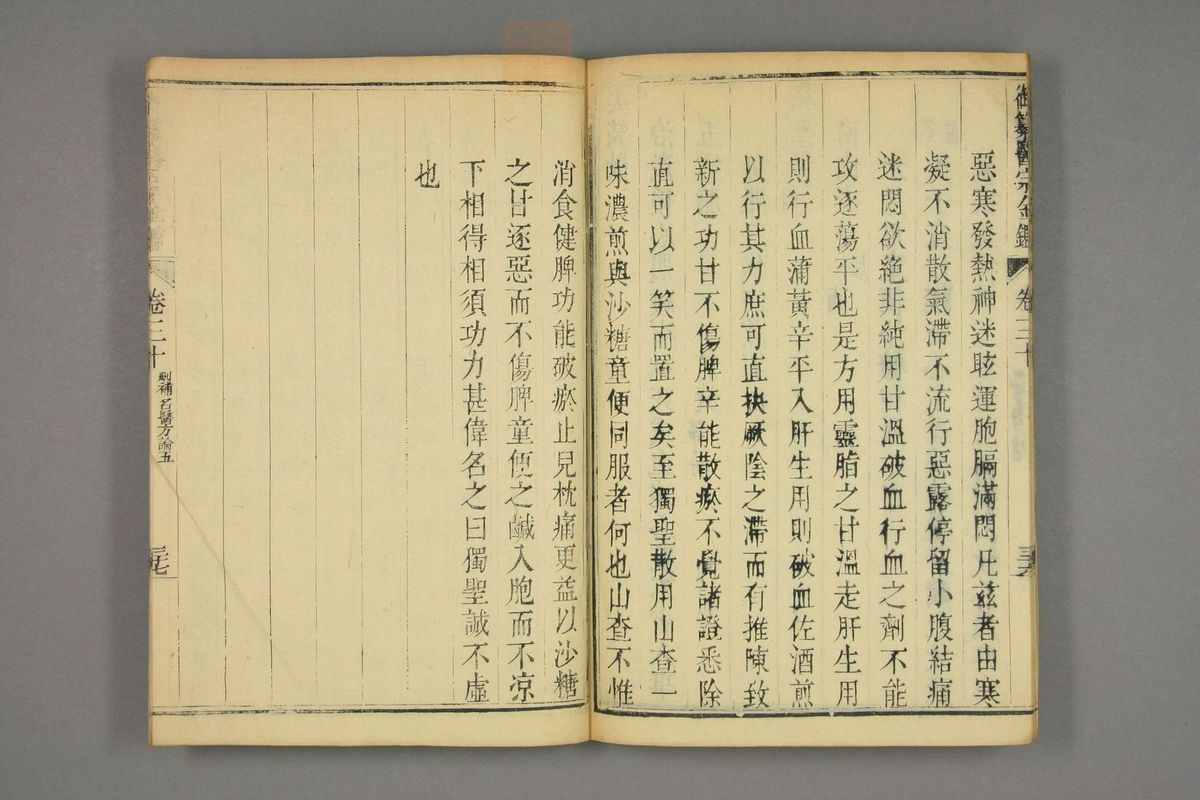 御纂醫宗金鑑 卷三十
惡寒發熱神迷眩運胞膈滿悶凡兹者由寒
凝不消散氣滯不流行惡露停留小腹結痛
迷悶欲絕非純用甘溫破血行血之劑不能
攻逐蕩平也是方用靈脂之甘溫走肝生用
則行血蒲黃辛平入肝生用則破血佐酒煎
以行其力庶可直抉厥陰之滯而有推陳致
新之功甘不傷脾辛能散瘀不覺諸證悉除
直可以一笑而置之矣至獨聖散用山查一
味濃煎與沙糖童便同服者何也山查不惟
消食健脾功能破瘀止兒枕痛更益以沙糖
之甘逐惡而不傷脾童便之鹹入胞而不凉
下相得相須功力甚偉名之曰獨聖誠不虛
也
卷三十 刪補名醫方論五 三七